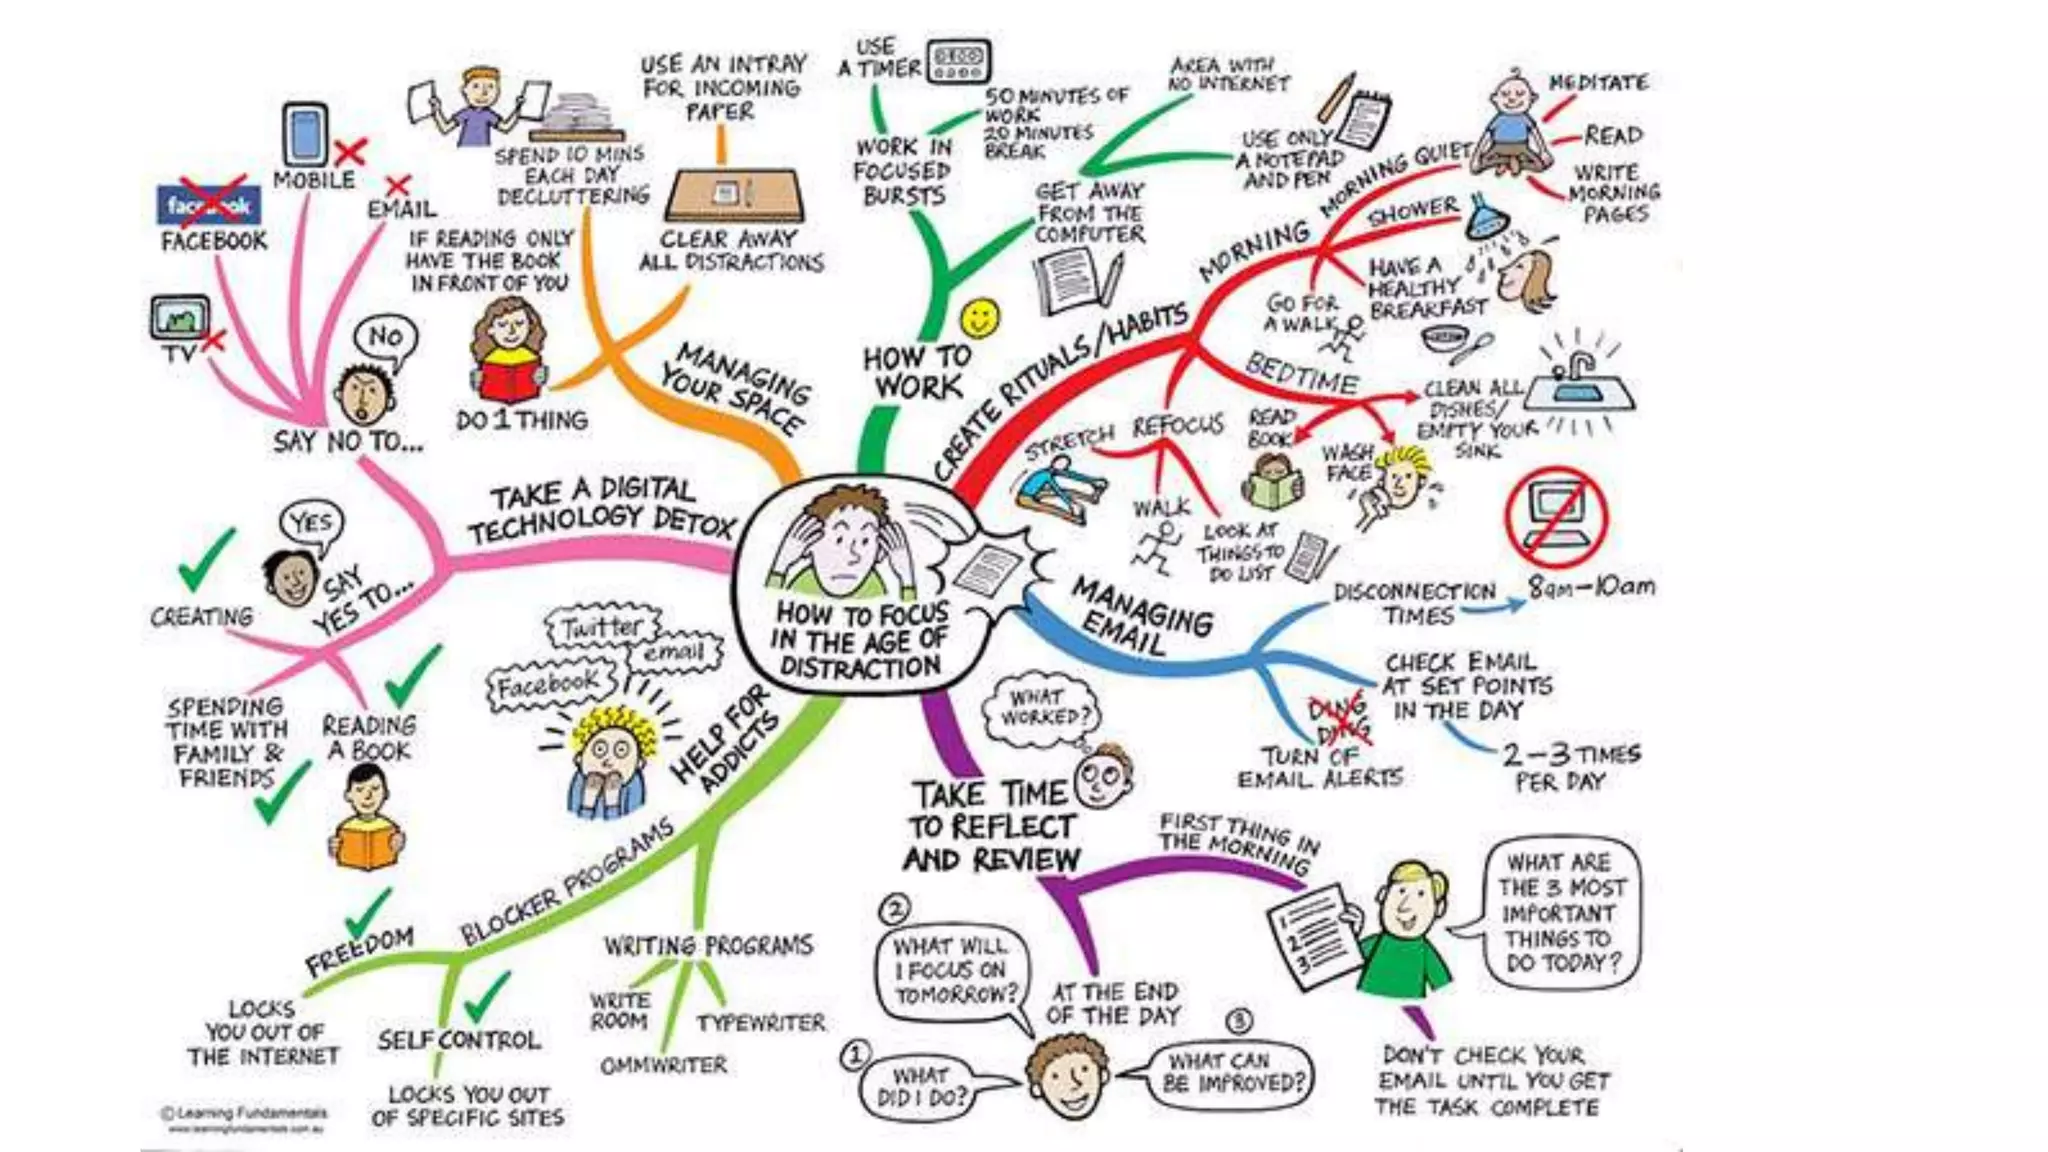 HOW TO FOCUS
IN THE AGE OF
DISTRACTION
HOW TO
WORK
WORK IN
FOCUSED
BURSTS
USE
A TIMER
50 MINUTES OF
WORK
20 MINUTES
BREAK
GET AWAY
FROM THE
COMPUTER
AREA WITH
NO INTERNET
USE ONLY
A NOTEPAD
AND PEN
CREATE RITUALS/HABITS
MORNING
MORNING QUIET
MEDITATE
READ
WRITE
MORNING
PAGES
SHOWER
HAVE A
HEALTHY
BREAKFAST
GO FOR
A WALK
BEDTIME
CLEAN ALL
DISHES/
EMPTY YOUR
SINK
READ
BOOK
WASH
FACE
REFOCUS
STRETCH
WALK
LOOK AT
THINGS TO
DO LIST
MANAGING
EMAIL
DISCONNECTION
TIMES
8am-10am
CHECK EMAIL
AT SET POINTS
IN THE DAY
2-3 TIMES
PER DAY
DING
DING
TURN OF
EMAIL ALERTS
TAKE TIME
TO REFLECT
AND REVIEW
WHAT
WORKED?
FIRST THING IN
THE MORNING
1
2
3
WHAT ARE
THE 3 MOST
IMPORTANT
THINGS TO
DO TODAY?
DON'T CHECK YOUR
EMAIL UNTIL YOU GET
THE TASK COMPLETE
AT THE END
OF THE DAY
1
WHAT
DID I DO?
2
WHAT WILL
I FOCUS ON
TOMORROW?
3
WHAT CAN
BE IMPROVED?
HELP FOR
ADDICTS
Twitter
email
Facebook
BLOCKER PROGRAMS
FREEDOM
LOCKS
YOU OUT OF
THE INTERNET
SELF CONTROL
LOCKS YOU OUT
OF SPECIFIC SITES
WRITING PROGRAMS
WRITE
ROOM
OMMWRITER
TYPEWRITER
TAKE A DIGITAL
TECHNOLOGY DETOX
SAY NO TO...
NO
TV
facebook
FACEBOOK
MOBILE
EMAIL
SAY
YES TO...
YES
CREATING
SPENDING
TIME WITH
FAMILY &
FRIENDS
READING
A BOOK
MANAGING
YOUR SPACE
SPEND 10 MINS
EACH DAY
DECLUTTERING
USE AN INTRAY
FOR INCOMING
PAPER
CLEAR AWAY
ALL DISTRACTIONS
IF READING ONLY
HAVE THE BOOK
IN FRONT OF YOU
DO 1 THING
© Learning Fundamentals
www.learningfundamentals.com.au